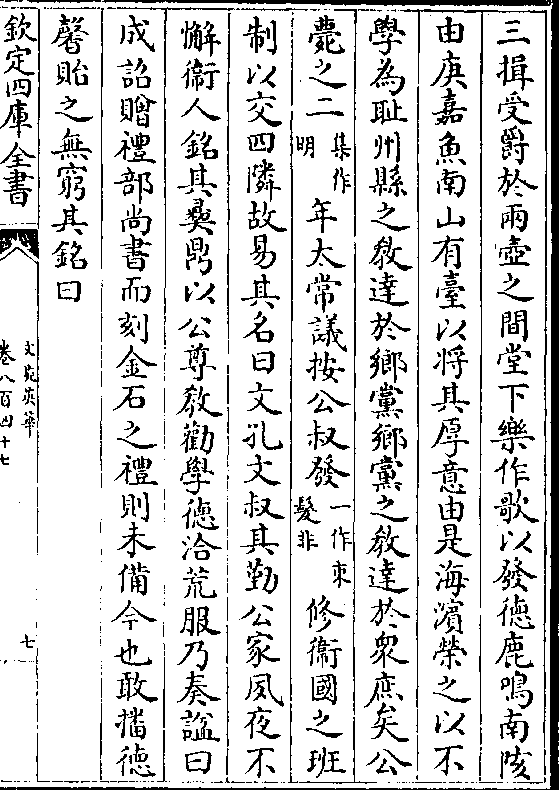 三揖受爵於兩壺之間堂下樂作歌以發德鹿鳴南陔
由庚嘉魚南山有臺以將其厚意由是海濱榮之以不
學為耻州縣之教達於鄉黨鄉黨之教達於衆庶矣公
薨之二集作明年太常議按公叔發一作束髮非修衞國之班
制以交四隣故易其名曰文孔文叔其勤公家夙夜不
懈衞人銘其彝鼎以公尊教勸學德洽荒服乃奏諡曰
成詔贈禮部尚書而刻金石之禮則未備今也敢播德
馨貽之無窮其銘曰
欽定四庫全書
文苑英華
卷八百四十七
七